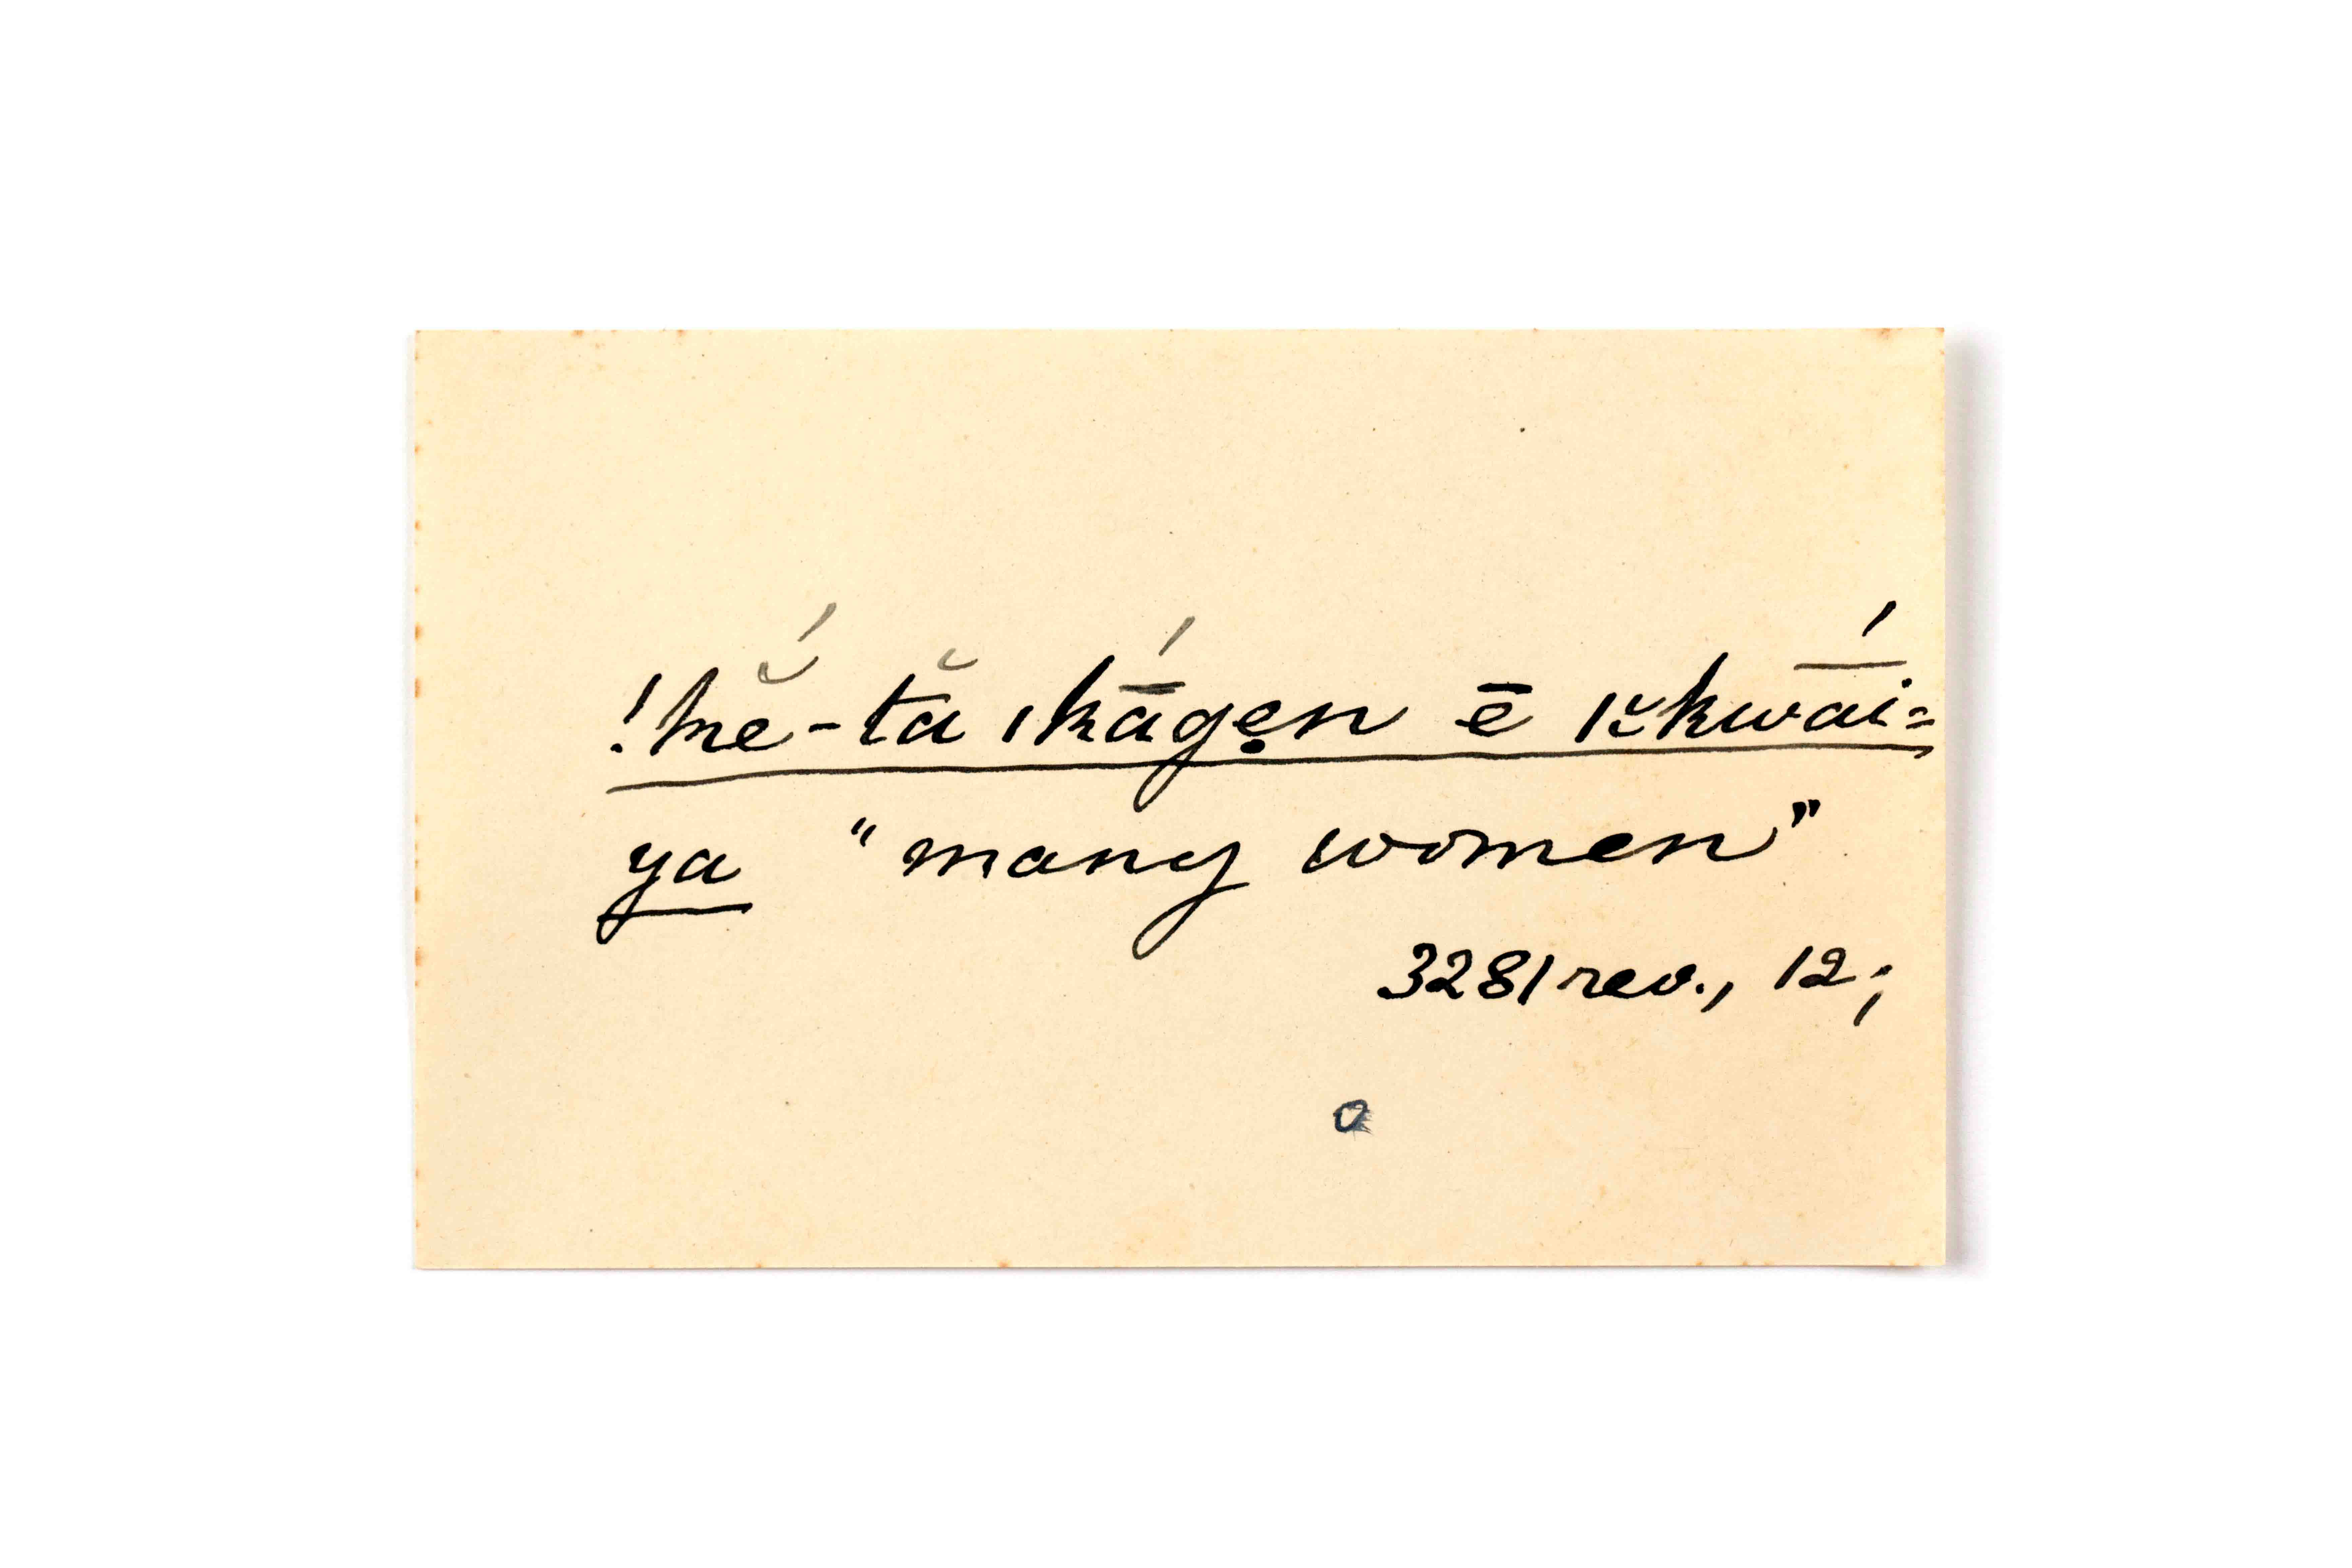 !kĕ́-tă ıkā́gẹn ē |k̆kwā́i=
ya "many women"
3281 rev., 12;